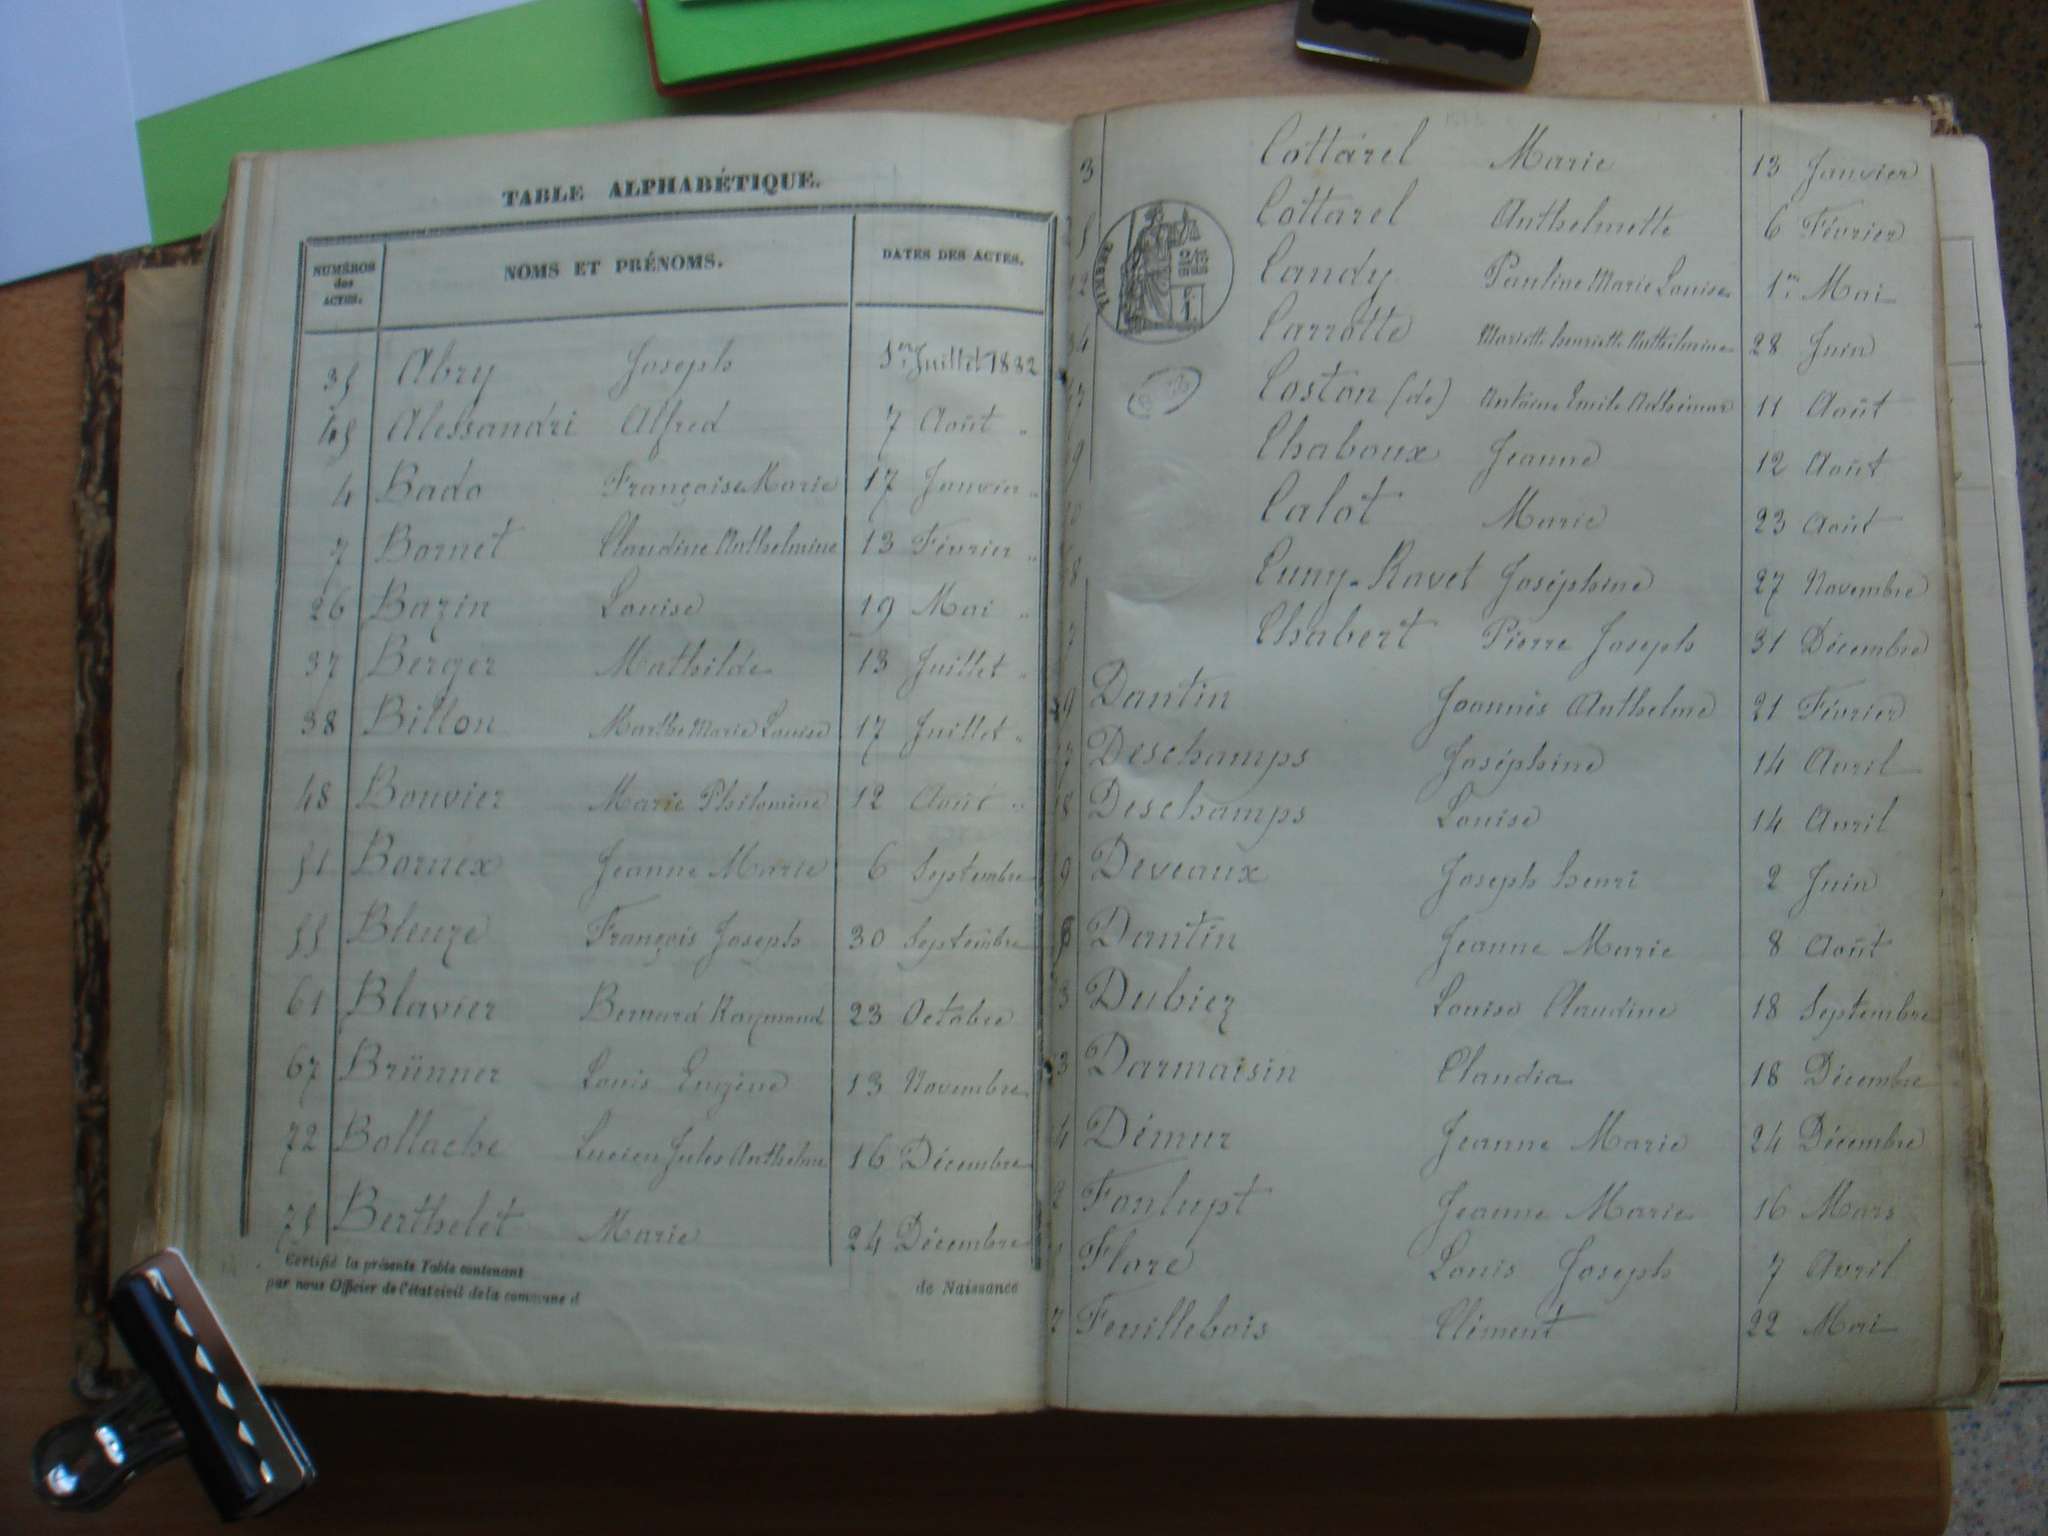 TABLE ALPHABÉTIQUE.
NUMÉROS des ACTES. NOMS ET PRÉNOMS. DATES DES ACTES.
35 Abry Joseph 1er Juillet 1882
45 Alessandri Alfred 7 Août "
4 Bado Françoise Marie 17 Janvier "
7 Bornet Claudine Anthelmine 13 Février "
26 Bazin Louise 19 Mai "
37 Berger Mathilde 13 Juillet "
38 Billon Marthe Marie Louise 17 Juillet "
48 Bouvier Marie Philomine 12 Août "
51 Bornex Jeanne Marie 6 Septembre
55 Bleuze François Joseph 30 Septembre
61 Blavier Bernard Raymond 23 Octobre
67 Brünner Louis Eugène 13 Novembre
72 Bollache Lucien Jules Anthelme 16 Décembre
75 Berthelet Marie 24 Décembre
Certifié la présente Table contenant de Naissance
par nous Officier de l'état civil de la commune d
3 Cottarel Marie 13 Janvier
Cottarel Anthelmette 6 Février
Candy Pauline Marie Louise 1er Mai
Carrotte Mariette henriette Anthelmine 28 Juin
Coston (de) Antoine Emile Adhémar 11 Août
9 Chaboux Jeanne 12 Août
Calot Marie 23 Août
8 Cuny-Ravet Joséphine 27 Novembre
Chabert Pierre Joseph 31 Décembre
9 Dantin Joannès Anthelme 21 Février
Deschamps Joséphine 14 Avril
8 Deschamps Louise 14 Avril
9 Deveaux Joseph henri 2 Juin
Dantin Jeanne Marie 8 Août
3 Dubiez Louise Claudine 18 Septembre
3 Darmaisin Claudia 18 Décembre
4 Démur Jeanne Marie 24 Décembre
Foulupt Jeanne Marie 16 Mars
Flore Louis Joseph 7 Avril
7 Feuillebois Clément 22 Mai
TIMBRE